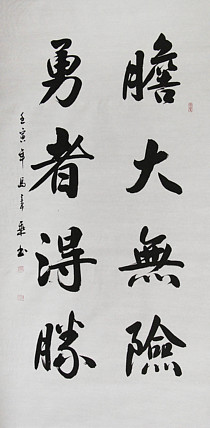 膽大無險
勇者得勝
壬寅年馬
書